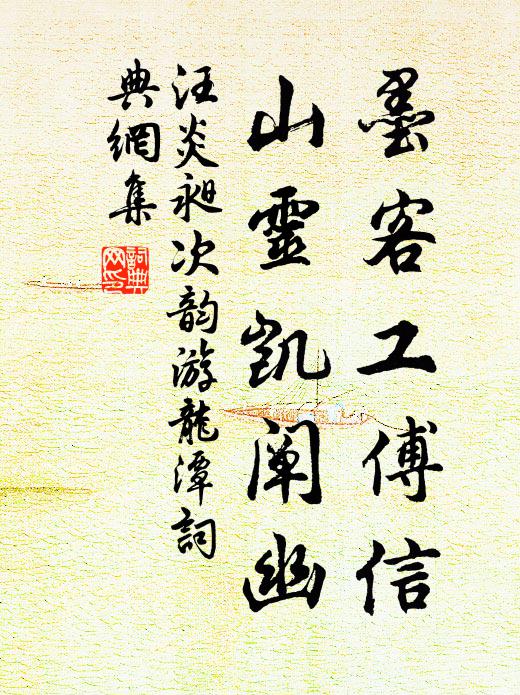 墨客工傅信
山靈凱闡幽
汪炎昶次韵游龍潭詞
典網集
詞典
网印